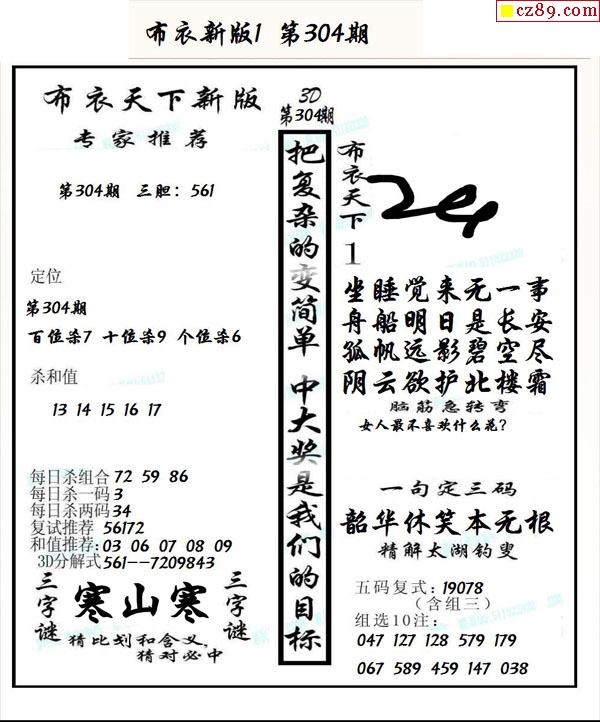 cz89.com
布衣新版1 第304期
布衣天下新版
专家推荐
第304期 三胆：561
定位
第304期
百位杀7 十位杀9 个位杀6
杀和值
13 14 15 16 17
每日杀组合 72 59 86
每日杀一码 3
每日杀两码 34
复试推荐 56172
和值推荐:03 06 07 08 09
3D分解式561--7209843
三字谜
寒山寒
三字谜
猜比划和含义,
猜对必中
3D
第304期
把复杂的变简单 中大奖是我们的目标
布衣天下1
坐睡觉来无一事
舟船明日是长安
孤帆远影碧空尽
阴云欲护北楼霜
脑筋急转弯
女人最不喜欢什么花?
一句定三码
韶华休笑本无根
精解太湖钓叟
五码复式:19078
（含组三）
组选10注:
047 127 128 579 179
067 589 459 147 038